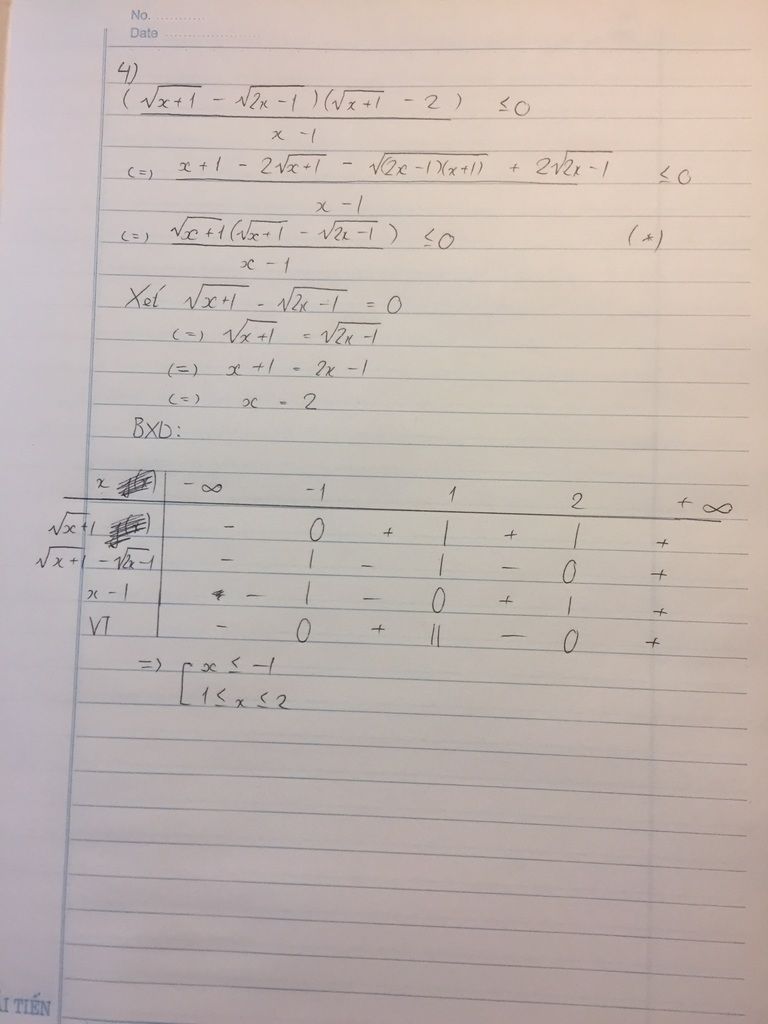 No. ............
Date ......................
4)
(√(x+1) - √(2x-1))(√(x+1) - 2) / (x - 1) ≤ 0
(=) (x+1 - 2√(x+1) - √((2x-1)(x+1)) + 2√(2x-1)) / (x - 1) ≤ 0
(=) √(x+1)(√(x+1) - √(2x-1)) / (x - 1) ≤ 0 (*)
Xét √(x+1) - √(2x-1) = 0
(=) √(x+1) = √(2x-1)
(=) x+1 = 2x-1
(=) x = 2
BXD:
x - ∞ -1 1 2 + ∞
√(x+1) - 0 + | + | +
√(x+1) - √(2x-1) - | - | - 0 +
x-1 - | - 0 + | +
VT - 0 + || - 0 +
=> [ x ≤ -1
1 ≤ x ≤ 2
ẢI TIẾN